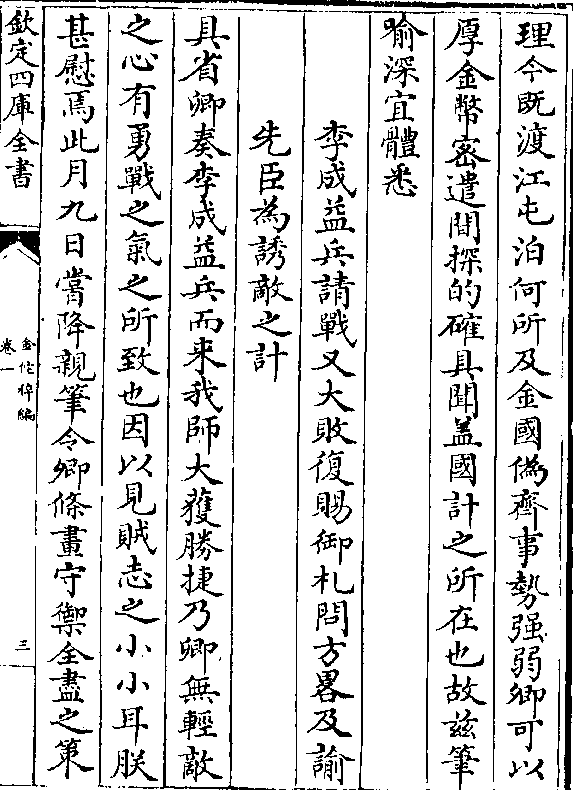 理今既渡江屯泊何所及金國偽齊事勢强弱卿可以
厚金幣密遣間探的確具聞蓋國計之所在也故兹筆
喻深宜體悉
李成益兵請戰又大敗復賜御札問方畧及諭
先臣為誘敵之計
具省卿奏李成益兵而来我師大獲勝捷乃卿無輕敵
之心有勇戰之氣之所致也因以見賊志之小小耳朕
甚慰焉此月九日嘗降親筆令卿條畫守禦全盡之策
欽定四庫全書
金佗稡編
卷一
三